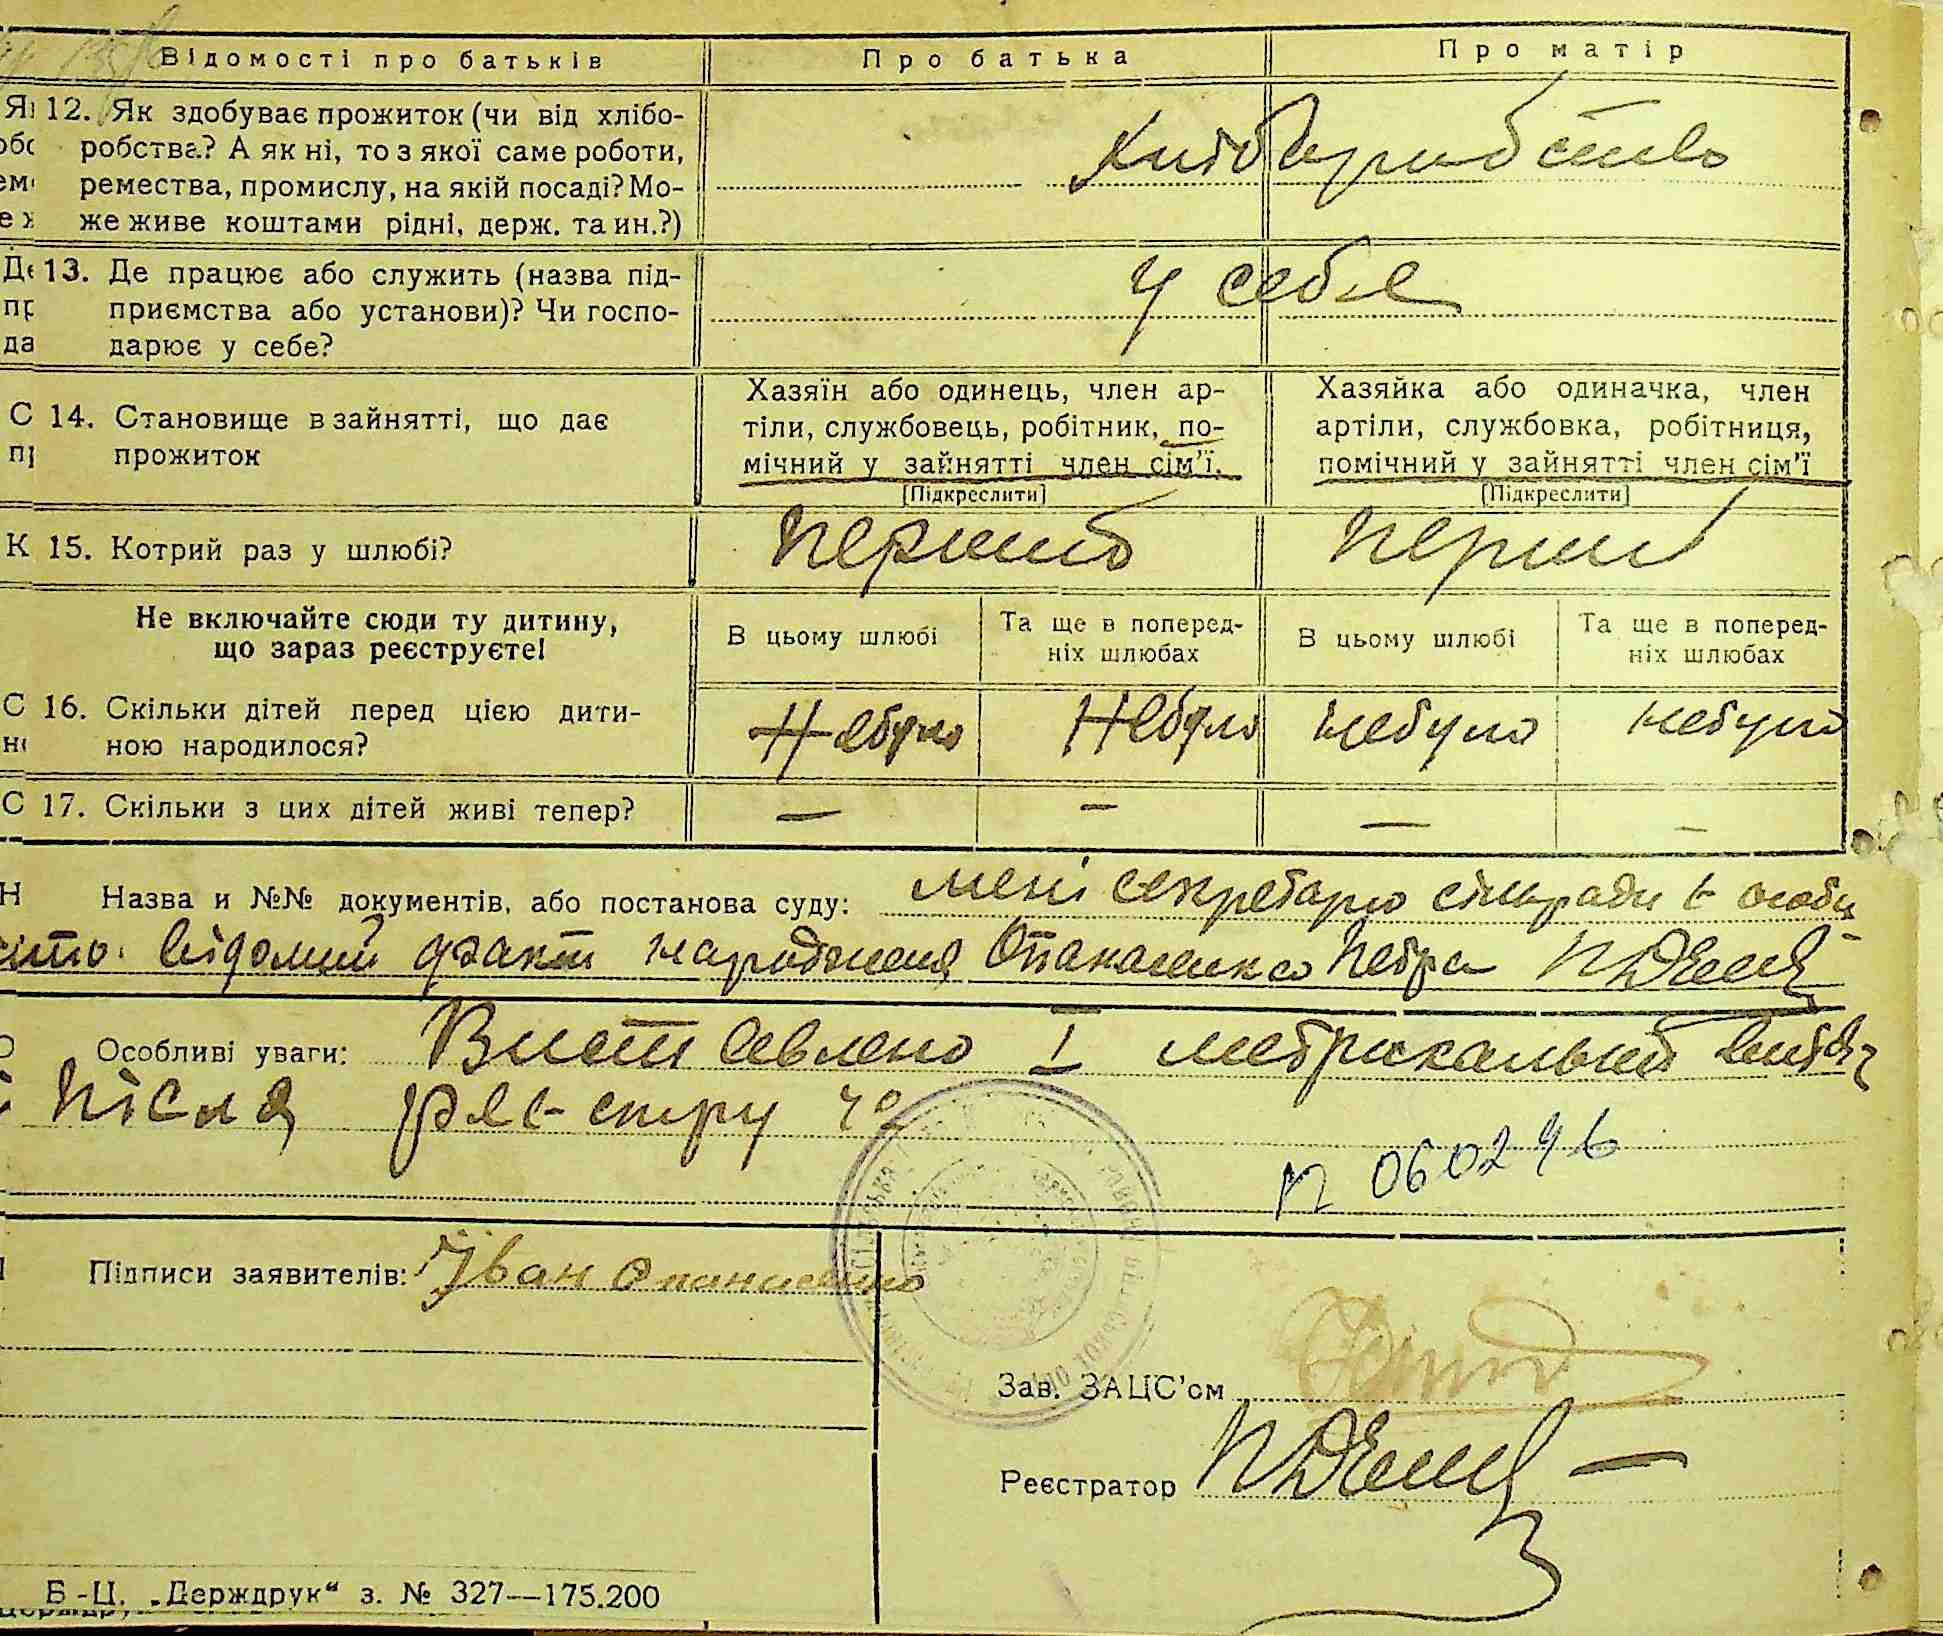 Відомості про батьків
Про батька
Про матір
12. Як здобуває прожиток (чи від хлібо-
робства? А як ні, то з якої саме роботи,
ремества, промислу, на якій посаді? Мо-
же живе коштами рідні, держ. та ин.?)
Хліборобство
13. Де працює або служить (назва під-
приємства або установи)? Чи госпо-
дарює у себе?
у себе
14. Становище в зайнятті, що дає
прожиток
Хазяїн або одинець, член ар-
тіли, службовець, робітник, по-
мічний у зайнятті член сім'ї.
[Підкреслити]
Хазяйка або одиначка, член
артіли, службовка, робітниця,
помічний у зайнятті член сім'ї
[Підкреслити]
15. Котрий раз у шлюбі?
Перший
Перший
Не включайте сюди ту дитину,
що зараз реєструєте!
В цьому шлюбі
Та ще в поперед-
ніх шлюбах
В цьому шлюбі
Та ще в поперед-
ніх шлюбах
16. Скільки дітей перед цією дити-
ною народилося?
Небуло
Небуло
небуло
небуло
17. Скільки з цих дітей живі тепер?
—
—
—
—
Назва и №№ документів, або постанова суду: мені секретарю сільради є особи
сто відомий факт народження Опанасенка Петра
Особливі уваги: Виставлено I метрикальний витяг
після реєстру
N 060246
Підписи заявителів: Іван Опанасенко
Зав. ЗАЦС'ом
Реєстратор
Б-Ц. „Держдрук“ з. № 327—175.200